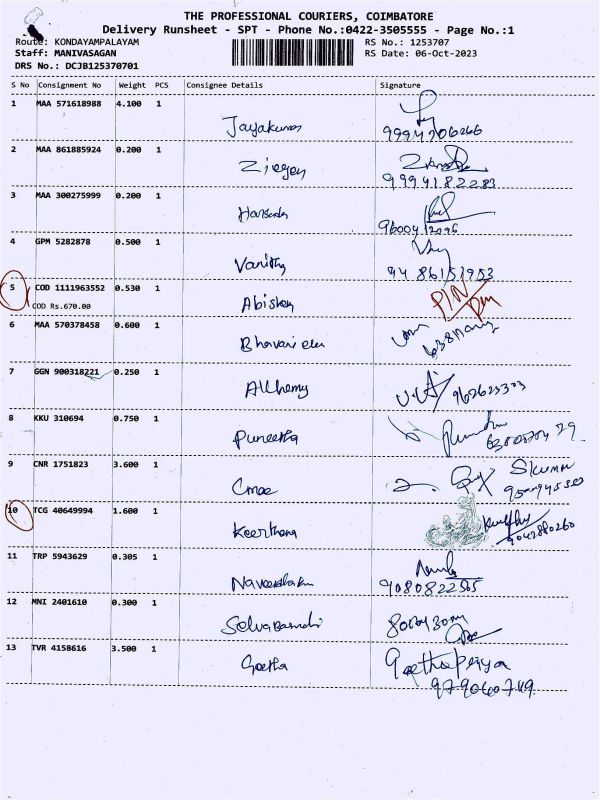 THE PROFESSIONAL COURIERS, COIMBATORE
Delivery Runsheet - SPT - Phone No.:0422-3505555 - Page No.:1
Route: KONDAYAMPALAYAM
RS No.: 1253707
Staff: MANIVASAGAN
RS Date: 06-Oct-2023
DRS No.: DCJB125370701
S No Consignment No Weight PCS Consignee Details Signature
1 MAA 571618988 4.100 1
Jayakumar 9994706266
2 MAA 861885924 0.200 1
9994182283
3 MAA 300275999 0.200 1
4 GPM 5282878 0.500 1
Vanitha 9486151953
5 COD 1111963552 0.530 1
COD Rs.670.00
6 MAA 570378458 0.600 1
7 GGN 900318221 0.250 1
Allhemy
8 KKU 310694 0.750 1
Puneetha
9 CNR 1751823 3.600 1
10 TCG 40649994 1.600 1
Keerthana 9042880260
11 TRP 5943629 0.305 1
9080822505
12 MNI 2401610 0.300 1
13 TVR 4158616 3.500 1
Geetha Geethapriya
9790607419